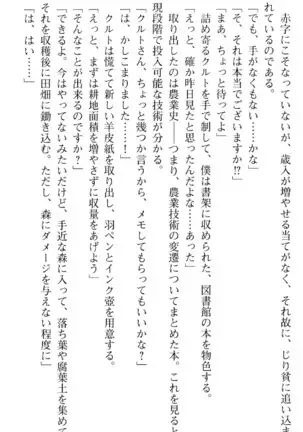 赤字にこそなっていないが、歳入が増やせる当てがなく、それ故に、じり貧に追い込ま
れているのである。
「でも、手がなくもない……かな」
「そ、それは本当でございますか!?」
「まあ、ちょっと待ってよ」
詰め寄るクルトを手で制して、僕は書架に収められた、図書館の本を物色する。
「えっと、確か昨日見たと思ったんだよな……あった」
取り出したのは農業史――つまり、農業技術の変遷についてまとめた本。これを見ると
現段階で投入可能な技術が分かる。
「クルトさん、ちょっと幾つか言うから、メモしてもらってもいいかな?」
「は、かしこまりました……!」
クルトは慌てて新しい羊皮紙を取り出し、羽ペンとインク壺を用意する。
「えっと、まずは耕地面積を増やさずに収量をあげよう」
「そんなことが出来るのですか?」
「できるよ。今はやってないみたいだけど、手近な森に入って、落ち葉や腐葉土を集めて
それを収穫後に田畑に鋤き込む。ただし、森にダメージを与えない程度に」
「は、はい……」